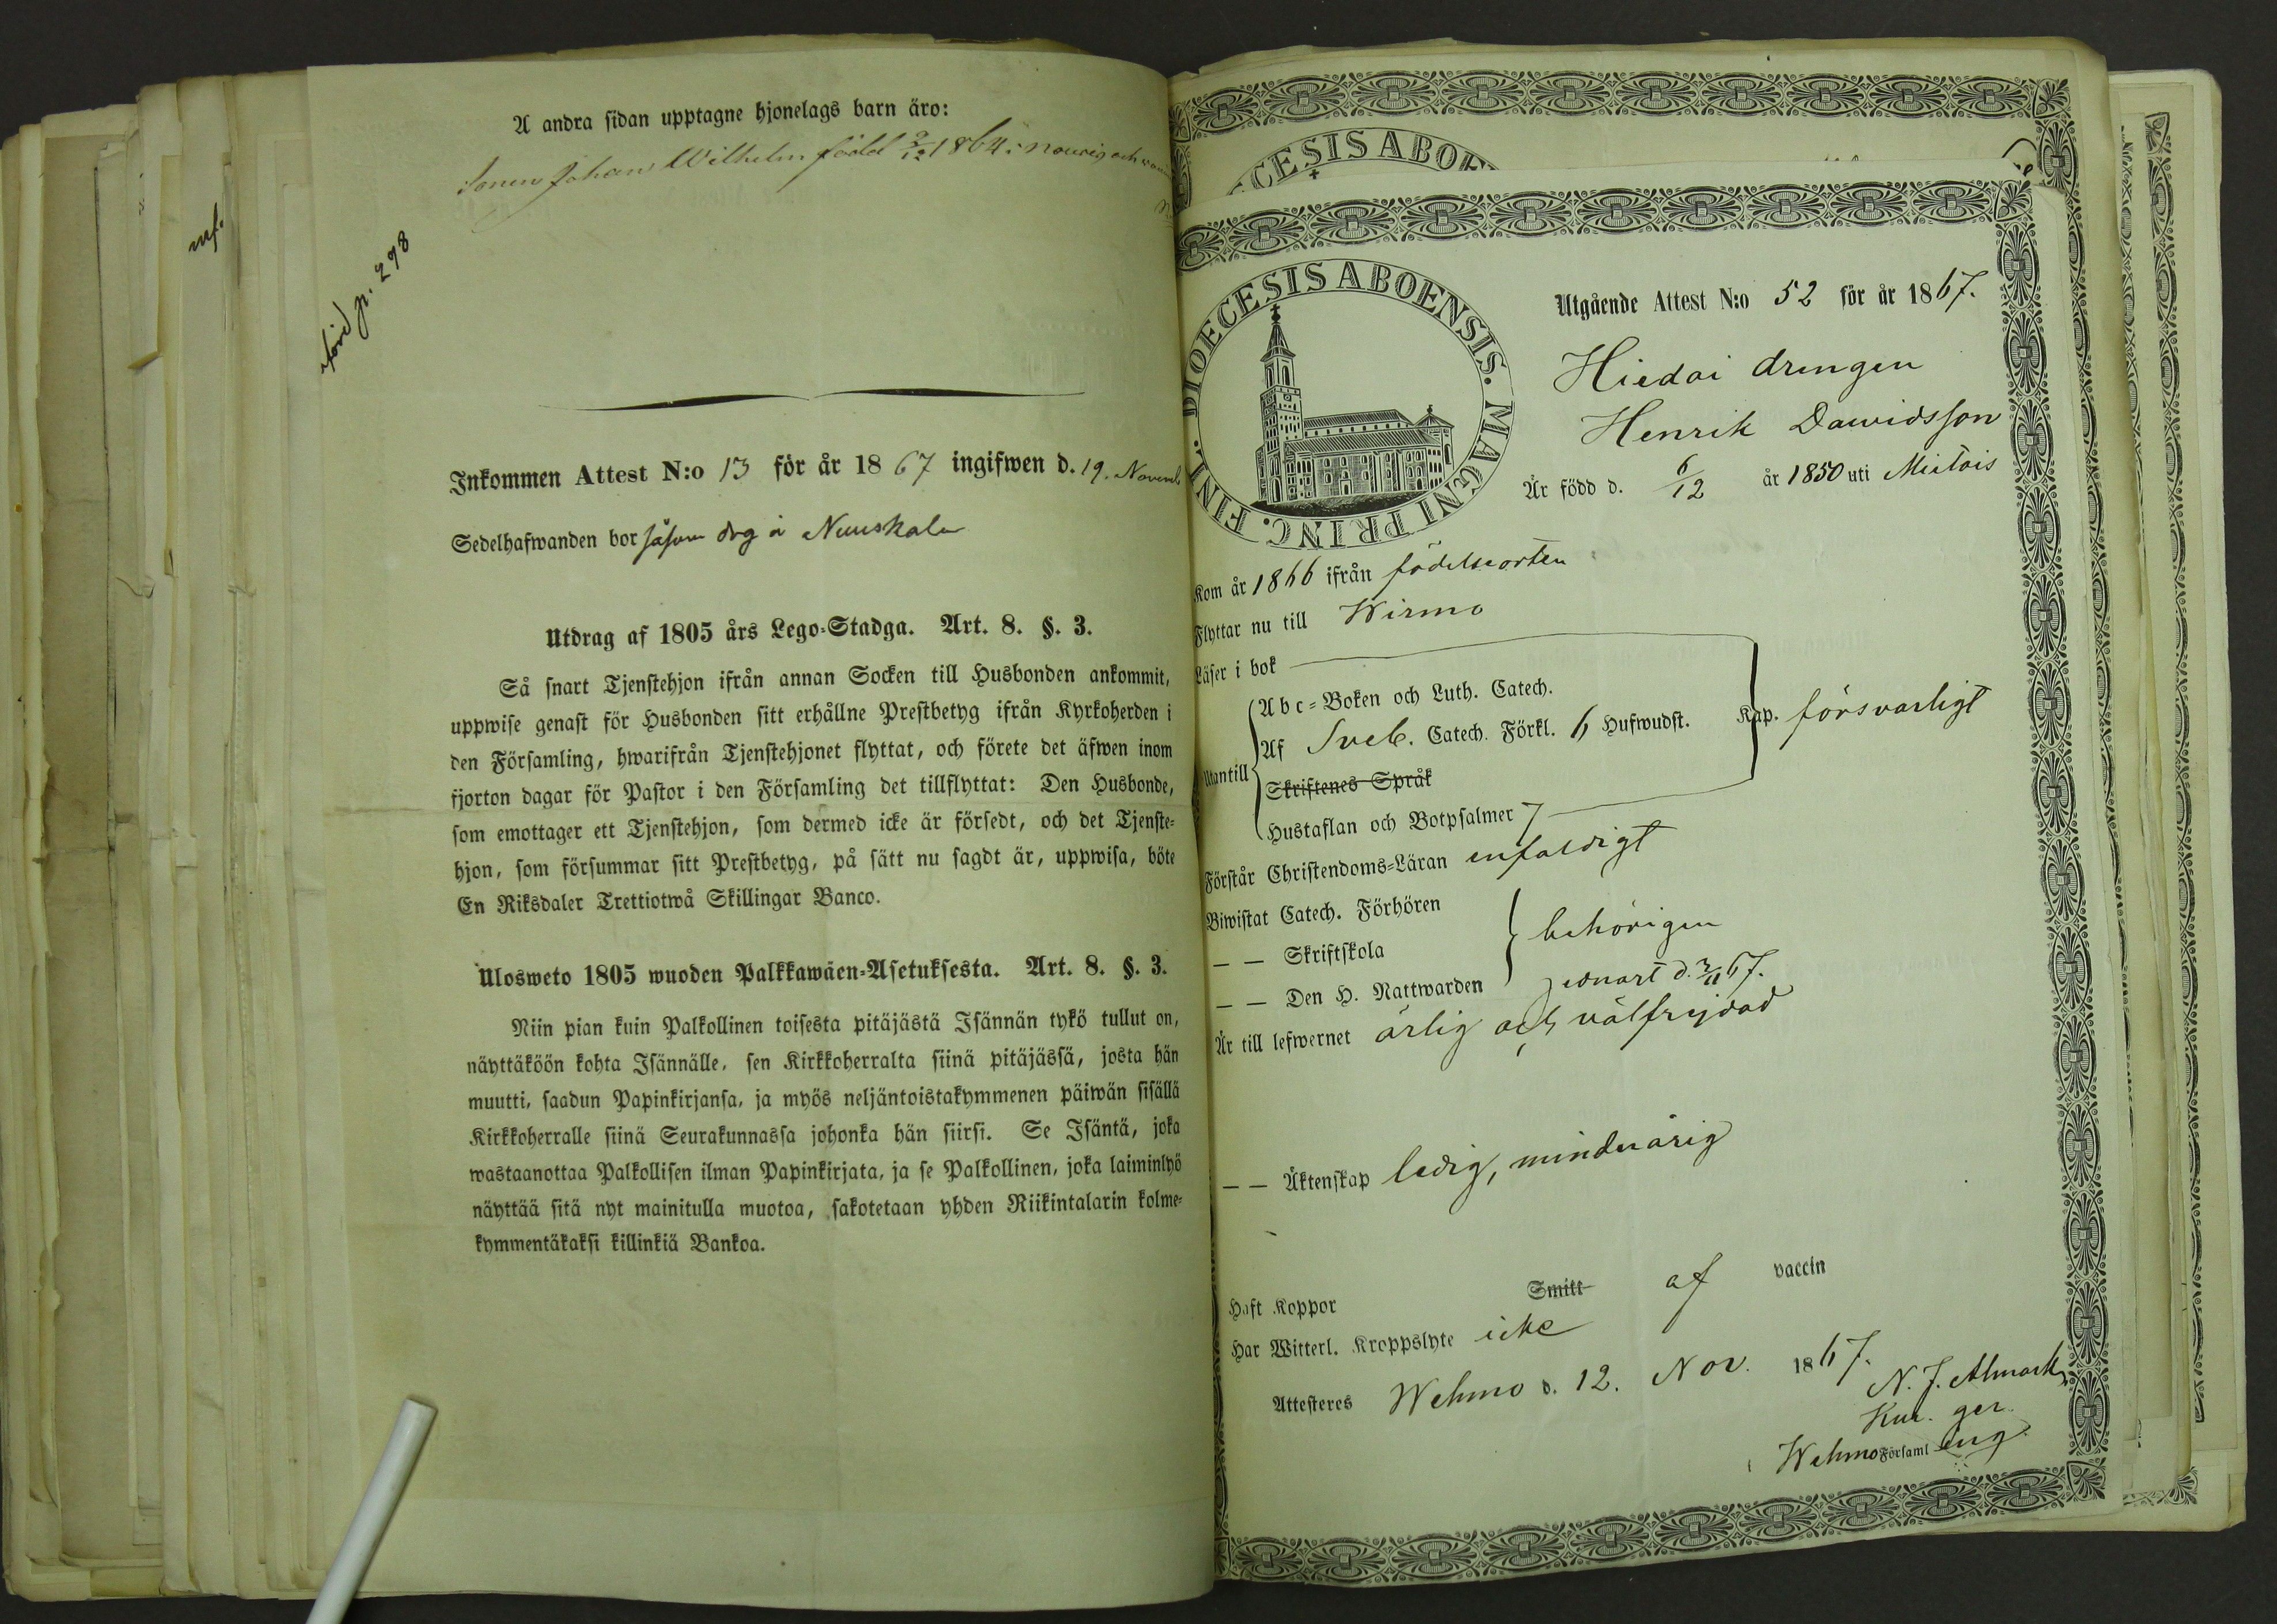 A andra sidan upptagne hjonelags barn äro:
Sonen Johan Wilhelm född 3/12 1864 i Nousis och
införd p. 298
Inkommen Attest N:o 13 för år 1867 ingifwen d. 19. Novemb
Sedelhafwanden bor såsom drg å Nuuskala
Utdrag af 1805 års Lego-Stadga. Art. 8. §. 3.
Så snart Tjenstehjon ifrån annan Socken till Husbonden ankommit,
uppwise genast för Husbonden sitt erhållne Prestbetyg ifrån Kyrkoherden i
den Församling, hwarifrån Tjenstehjonet flyttat, och förete det äfwen inom
fjorton dagar för Pastor i den Församling det tillflyttat: Den Husbonde,
som emottager ett Tjenstehjon, som dermed icke är försedt, och det Tjenste-
hjon, som försummar sitt Prestbetyg, på sätt nu sagdt är, uppwisa, böte
En Riksdaler Trettiotwå Skillingar Banco.
Ulosweto 1805 wuoden Palkkawäen-Asetuksesta. Art. 8. §. 3.
Niin pian kuin Palkollinen toisesta pitäjästä Isännän tykö tullut on,
näyttäköön kohta Isännälle, sen Kirkkoherralta siinä pitäjässä, josta hän
muutti, saadun Papinkirjansa, ja myös neljäntoistakymmenen päiwän sisällä
Kirkkoherralle siinä Seurakunnassa johonka hän siirsi. Se Isäntä, joka
wastaanottaa Palkollisen ilman Papinkirjata, ja se Palkollinen, joka laiminlyö
näyttää sitä nyt mainitulla muotoa, sakotetaan yhden Riikintalarin kolme-
kymmentäkaksi killinkiä Bankoa.
CESIS ABOEN
DIOECESIS ABOENSIS. MAGNI PRINC. FINL.
Utgående Attest N:o 52 för år 1867.
Hiedai drengen
Henrik Dawidsson
Är född d. 6/12 år 1850 uti Mietois
Kom år 1866 ifrån födelseorten
Flyttar nu till Wirmo
Läser i bok
Abc-Boken och Luth. Catech.
Utantill Af Sveb. Catech. Förkl. 6 Hufwudst. Kap. försvarligt
Skriftenes Språk
Hustaflan och Botpsalmer 7
Förstår Christendoms-Läran enfaldigt
Biwistat Catech. Förhören
— — Skriftskola behörigen
— — Den H. Nattwarden senast d. 3/11 67.
Är till lefwernet ärlig och välfrejdad
— — Äktenskap ledig, minderårig
Haft Koppor Smitt af vaccin
Har Witterl. Kroppslyte icke
Attesteres Wehmo d. 12. Nov. 1867.
N. J. Almark
Kur. ger.
Wehmo Församl ing.